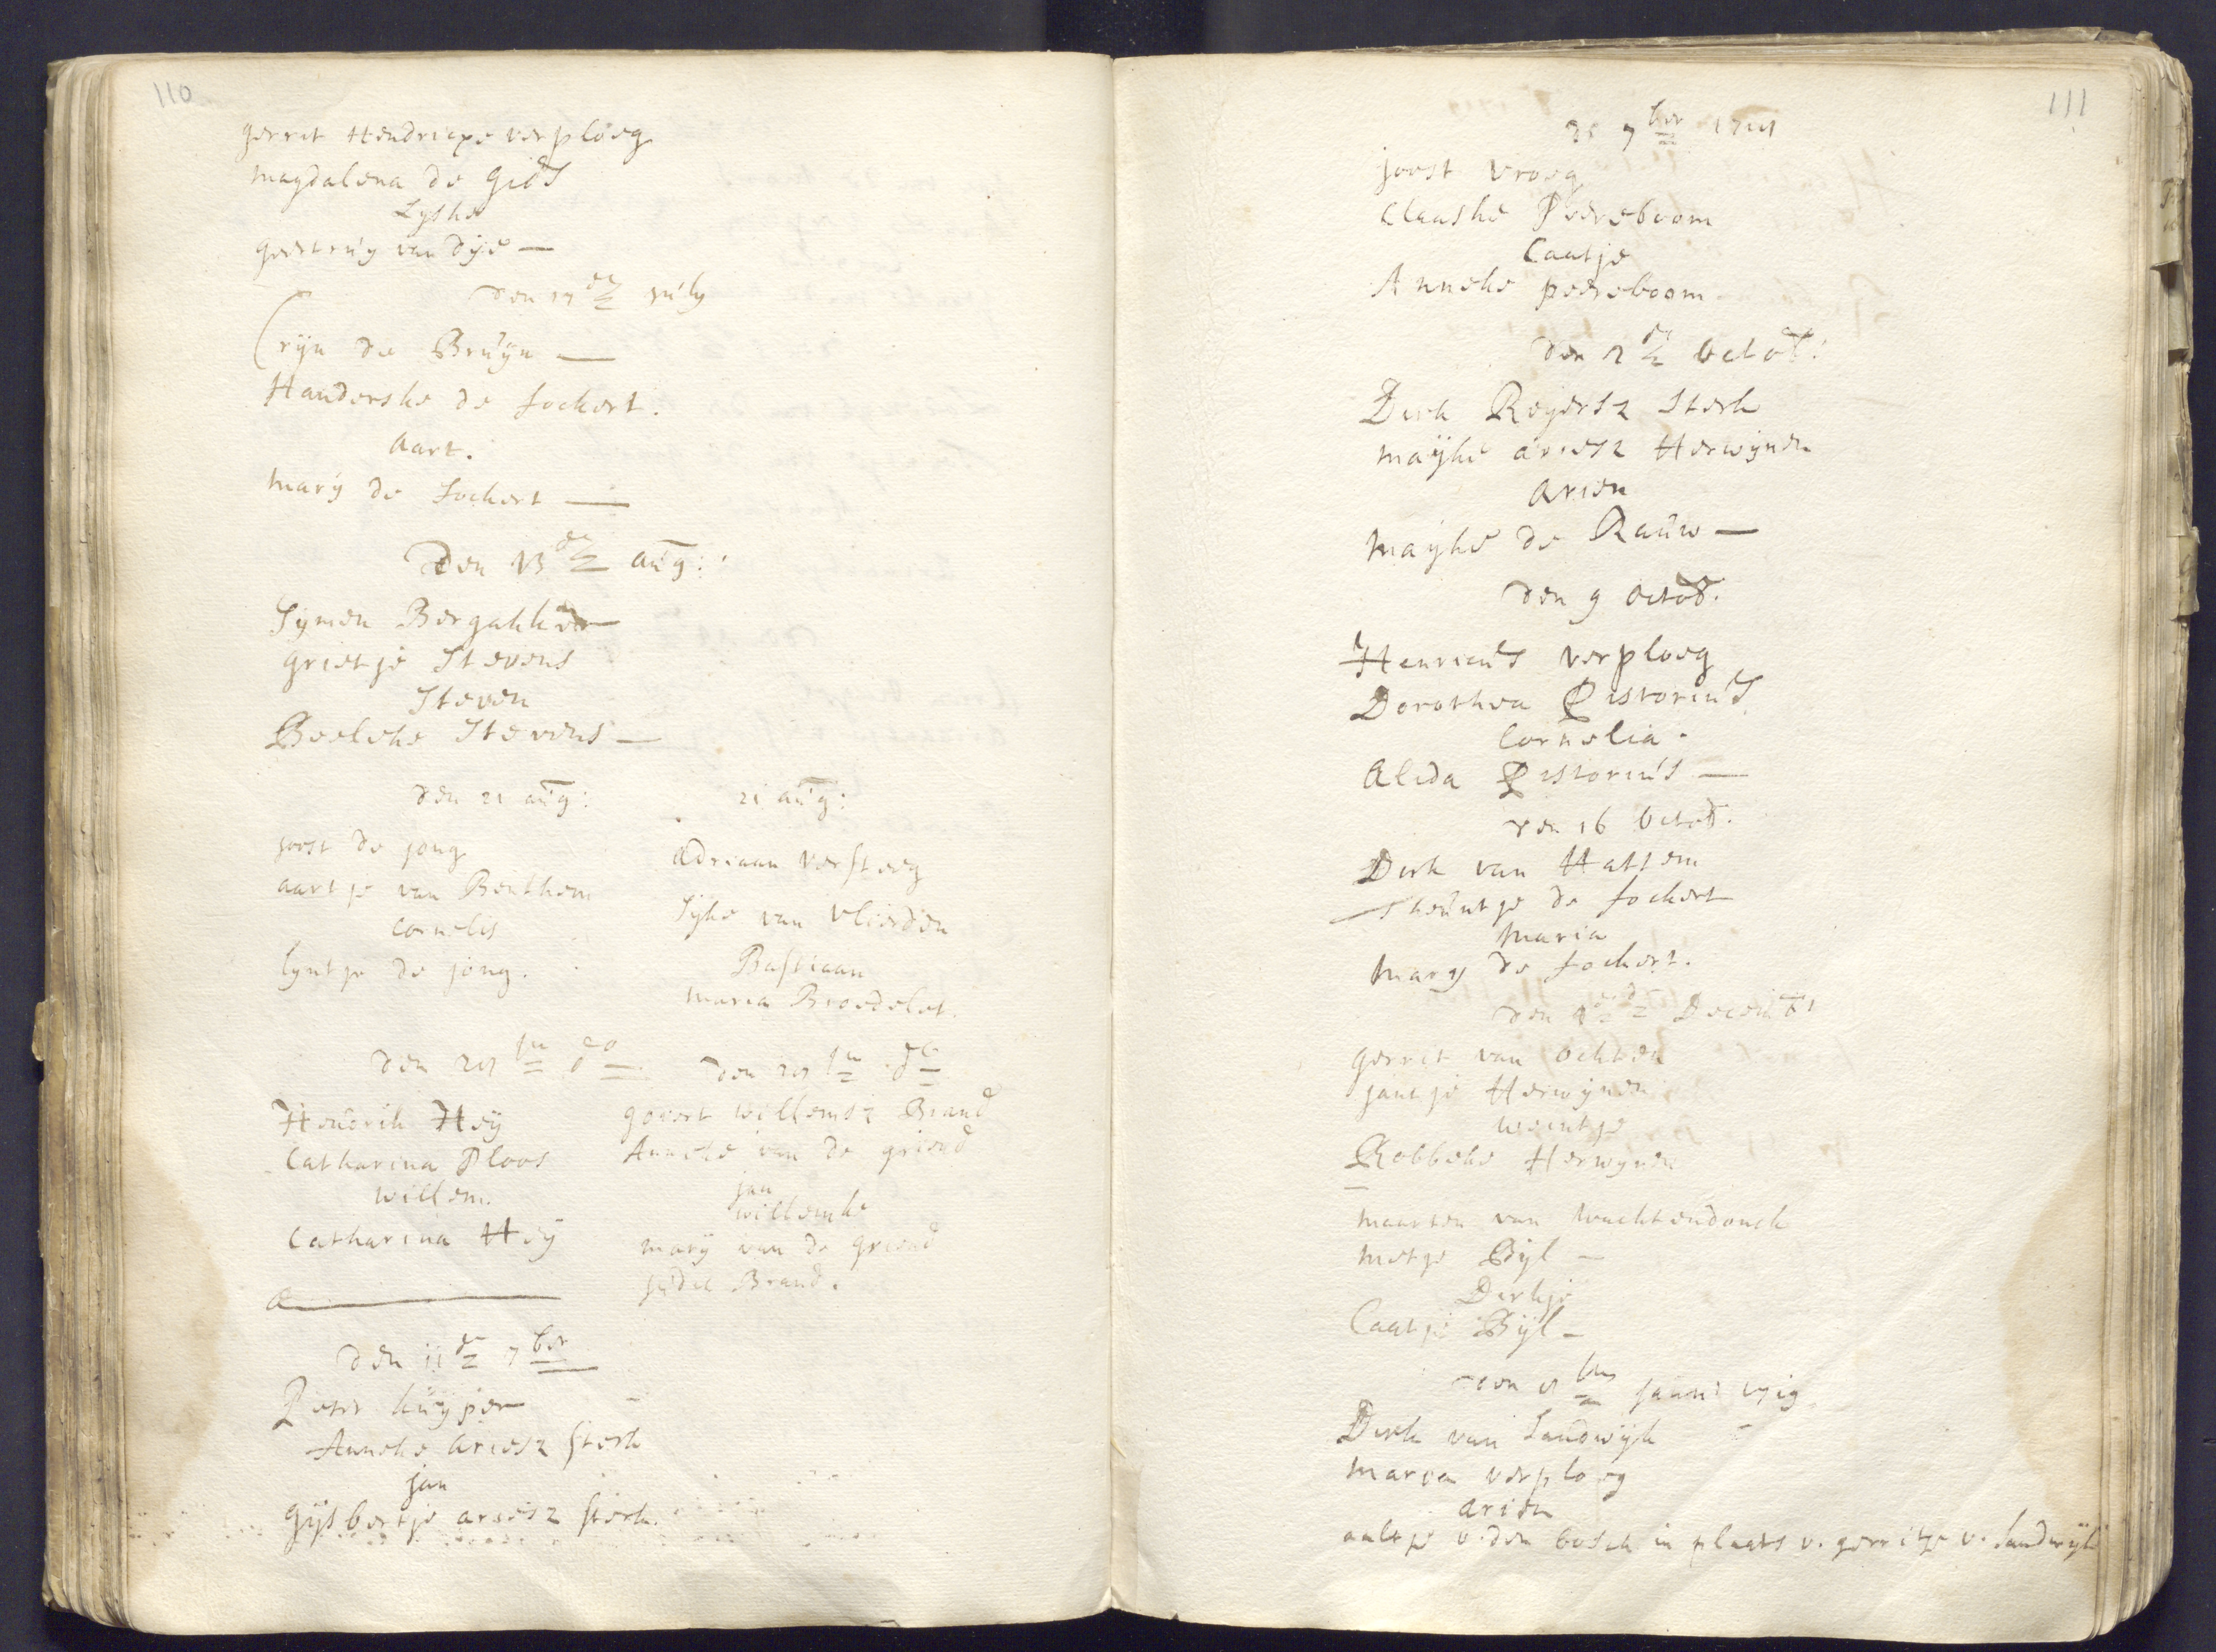 110
gerrit Hendricxe verploeg
magdalena de Gids
Lyske
geertruy van dye —
den 17 de july
Cryn de Bruyn —
Handerske de fockert.
aart.
marÿ de fockert —
Den 13 de aug:
Symen Bergakker
grietje Stevens
Steven
Beeleke Stevens —
den 21 aug:
joost de jong
aartje van Benthem
cornelis
lyntje de jong.
21 aug:
Adriaan versteeg
Sijke van vlierden
Bastiaan
maria Broedelet.
den 28 sten do
Hendrik Heÿ
Catharina Ploos
willem.
Catharina Heÿ
den 28 sten do
govert willemsz Brand
Anneke van de griend
jan
willemke
marÿ van de griend
judic Brand.
den 11 de 7ber
Peter kuyper
Anneke ariesz sterk
jan
Gijsbertje ariesz sterk.
111
7ber 1718
joost vroeg
Claaske Peereboom
Caatje
Anneke peereboom
den 2 de Octob:
Dirk Reyersz Sterk
maÿke ariesz Herwijnen
arien
maÿke de Rauw —
den 9 octob.
Henricus verploeg
Dorothea Pistorius
Cornelia.
Alida Pistorius —
den 16 Octob.
Dirk van Hattem
Theuntje de fockert
maria
mary de fockert.
den Decemb
gerrit van ochten
jantje Herwijnen
weintje
Robbeke Herwynen
maarten van wachtendonck
metje Bÿl —
Dirkje
Caatje Bÿl —
den 8 sten januari 1719
Dirk van Sandwijk
maria verploeg
arien
aaltje v. den bosch in plaats v. gerritje v. Sandwijk